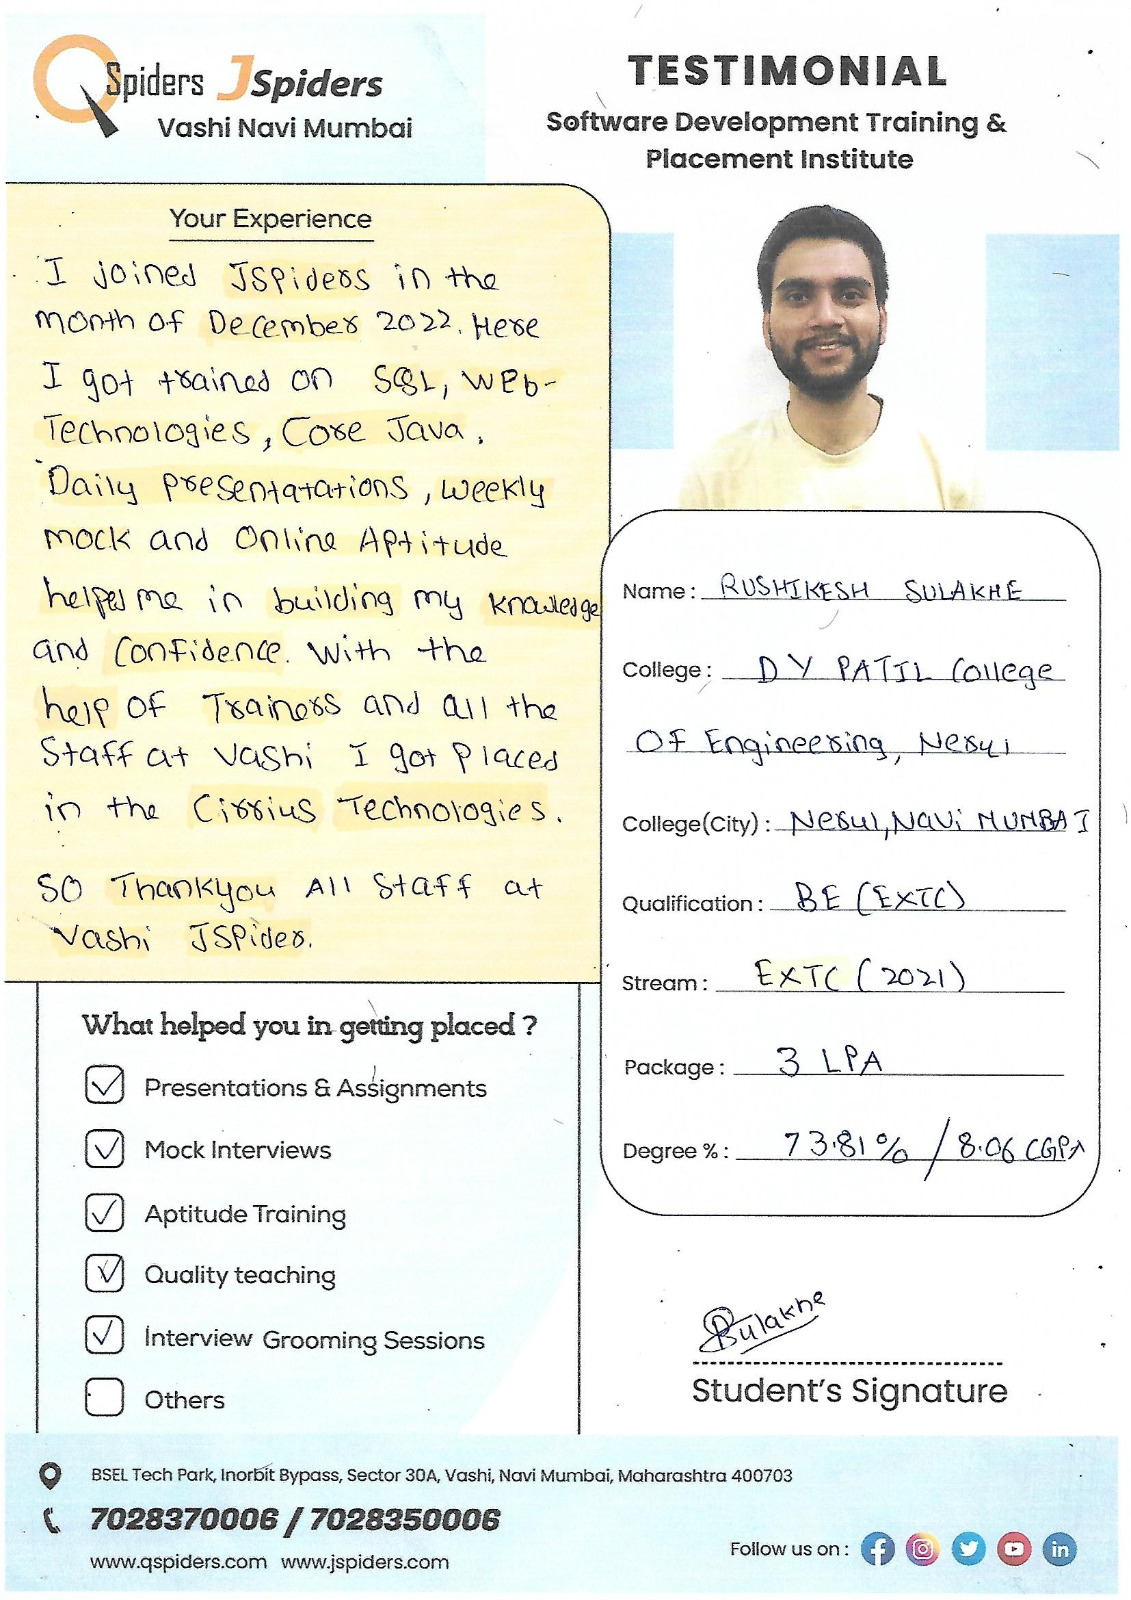 QSpiders JSpiders
Vashi Navi Mumbai
TESTIMONIAL
Software Development Training &
Placement Institute
Your Experience
I joined JSpiders in the
month of December 2022. Here
I got trained on SQL, Web-
Technologies, Core Java.
Daily presentatations, weekly
mock and Online Aptitude
helped me in building my knowledge
and Confidence. With the
help of Trainers and all the
Staff at Vashi I got Placed
in the Cirrius Technologies.
SO Thankyou All Staff at
Vashi JSPider.
Name : RUSHIKESH SULAKHE
College : D Y PATIL College
OF Engineering, Nerul
College(City) : Nerul, Navi MUMBAI
Qualification : BE (EXTC)
Stream : EXTC (2021)
Package : 3 LPA
Degree % : 73.81% / 8.06 CGPA
What helped you in getting placed ?
Presentations & Assignments
Mock Interviews
Aptitude Training
Quality teaching
Interview Grooming Sessions
Others
Sulakhe
Student's Signature
BSEL Tech Park, Inorbit Bypass, Sector 30A, Vashi, Navi Mumbai, Maharashtra 400703
7028370006 / 7028350006
www.qspiders.com www.jspiders.com
Follow us on :